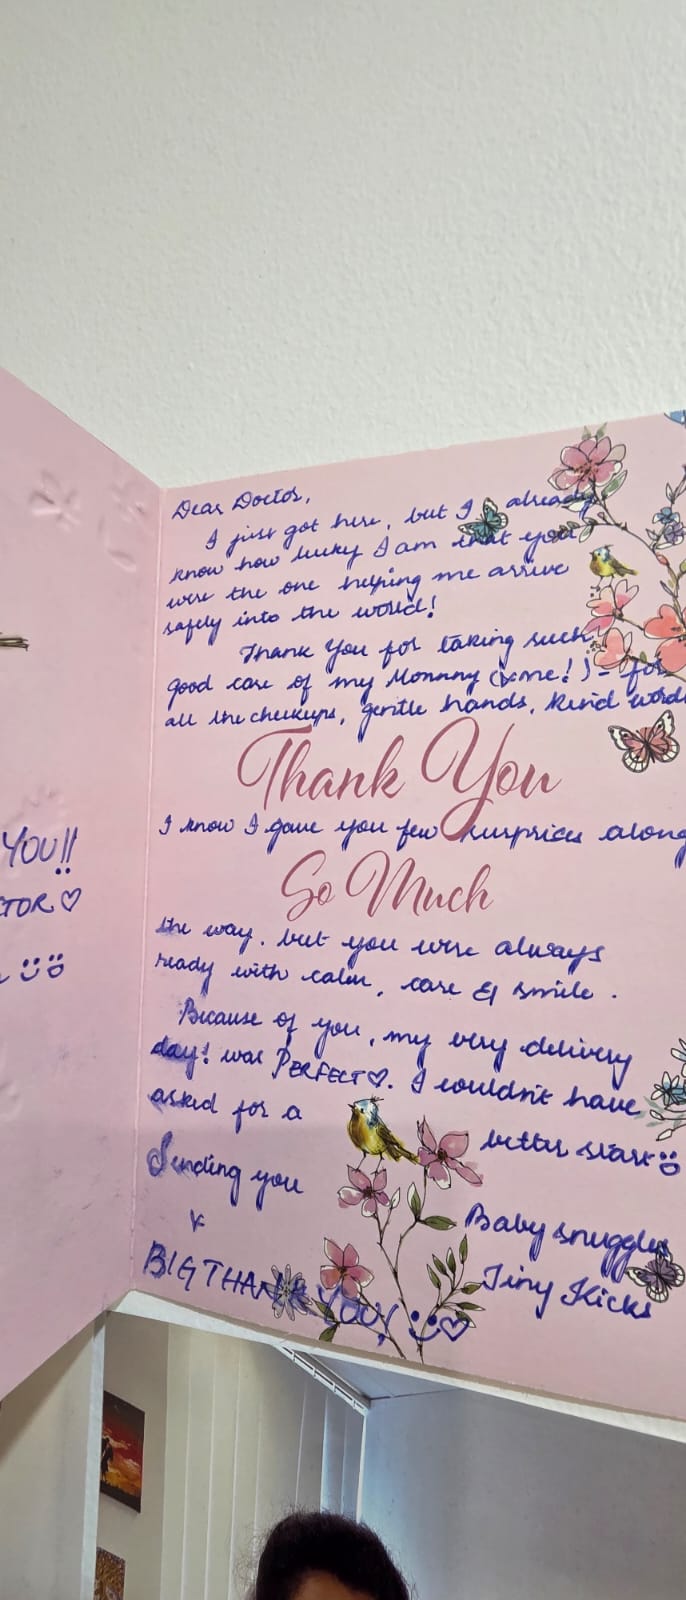 YOU!!
CTOR ♡
Dear Doctor,
I just got here, but I already
know how lucky I am that you
were the one helping me arrive
safely into the world!
Thank You for taking such
good care of my Mommy (& me!) - for
all the checkups, gentle hands, kind words
Thank You
I know I gave you few surprises along
So Much
the way. but you were always
ready with calm, care & smile.
Because of you, my very delivery
day! was PERFECT ♡. I couldn't have
asked for a
better start
Sending you
Baby snuggles
&
Tiny Kicks
BIG THANK YOU! ♡